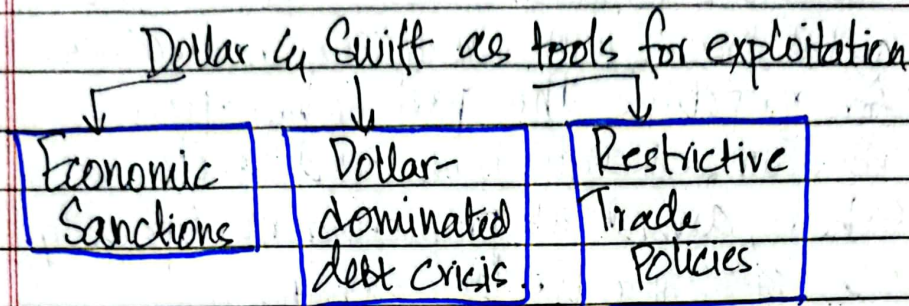 Dollar & Swift as tools for exploitation
Economic
Sanctions
Dollar-
dominated
debt crisis.
Restrictive
Trade
Policies